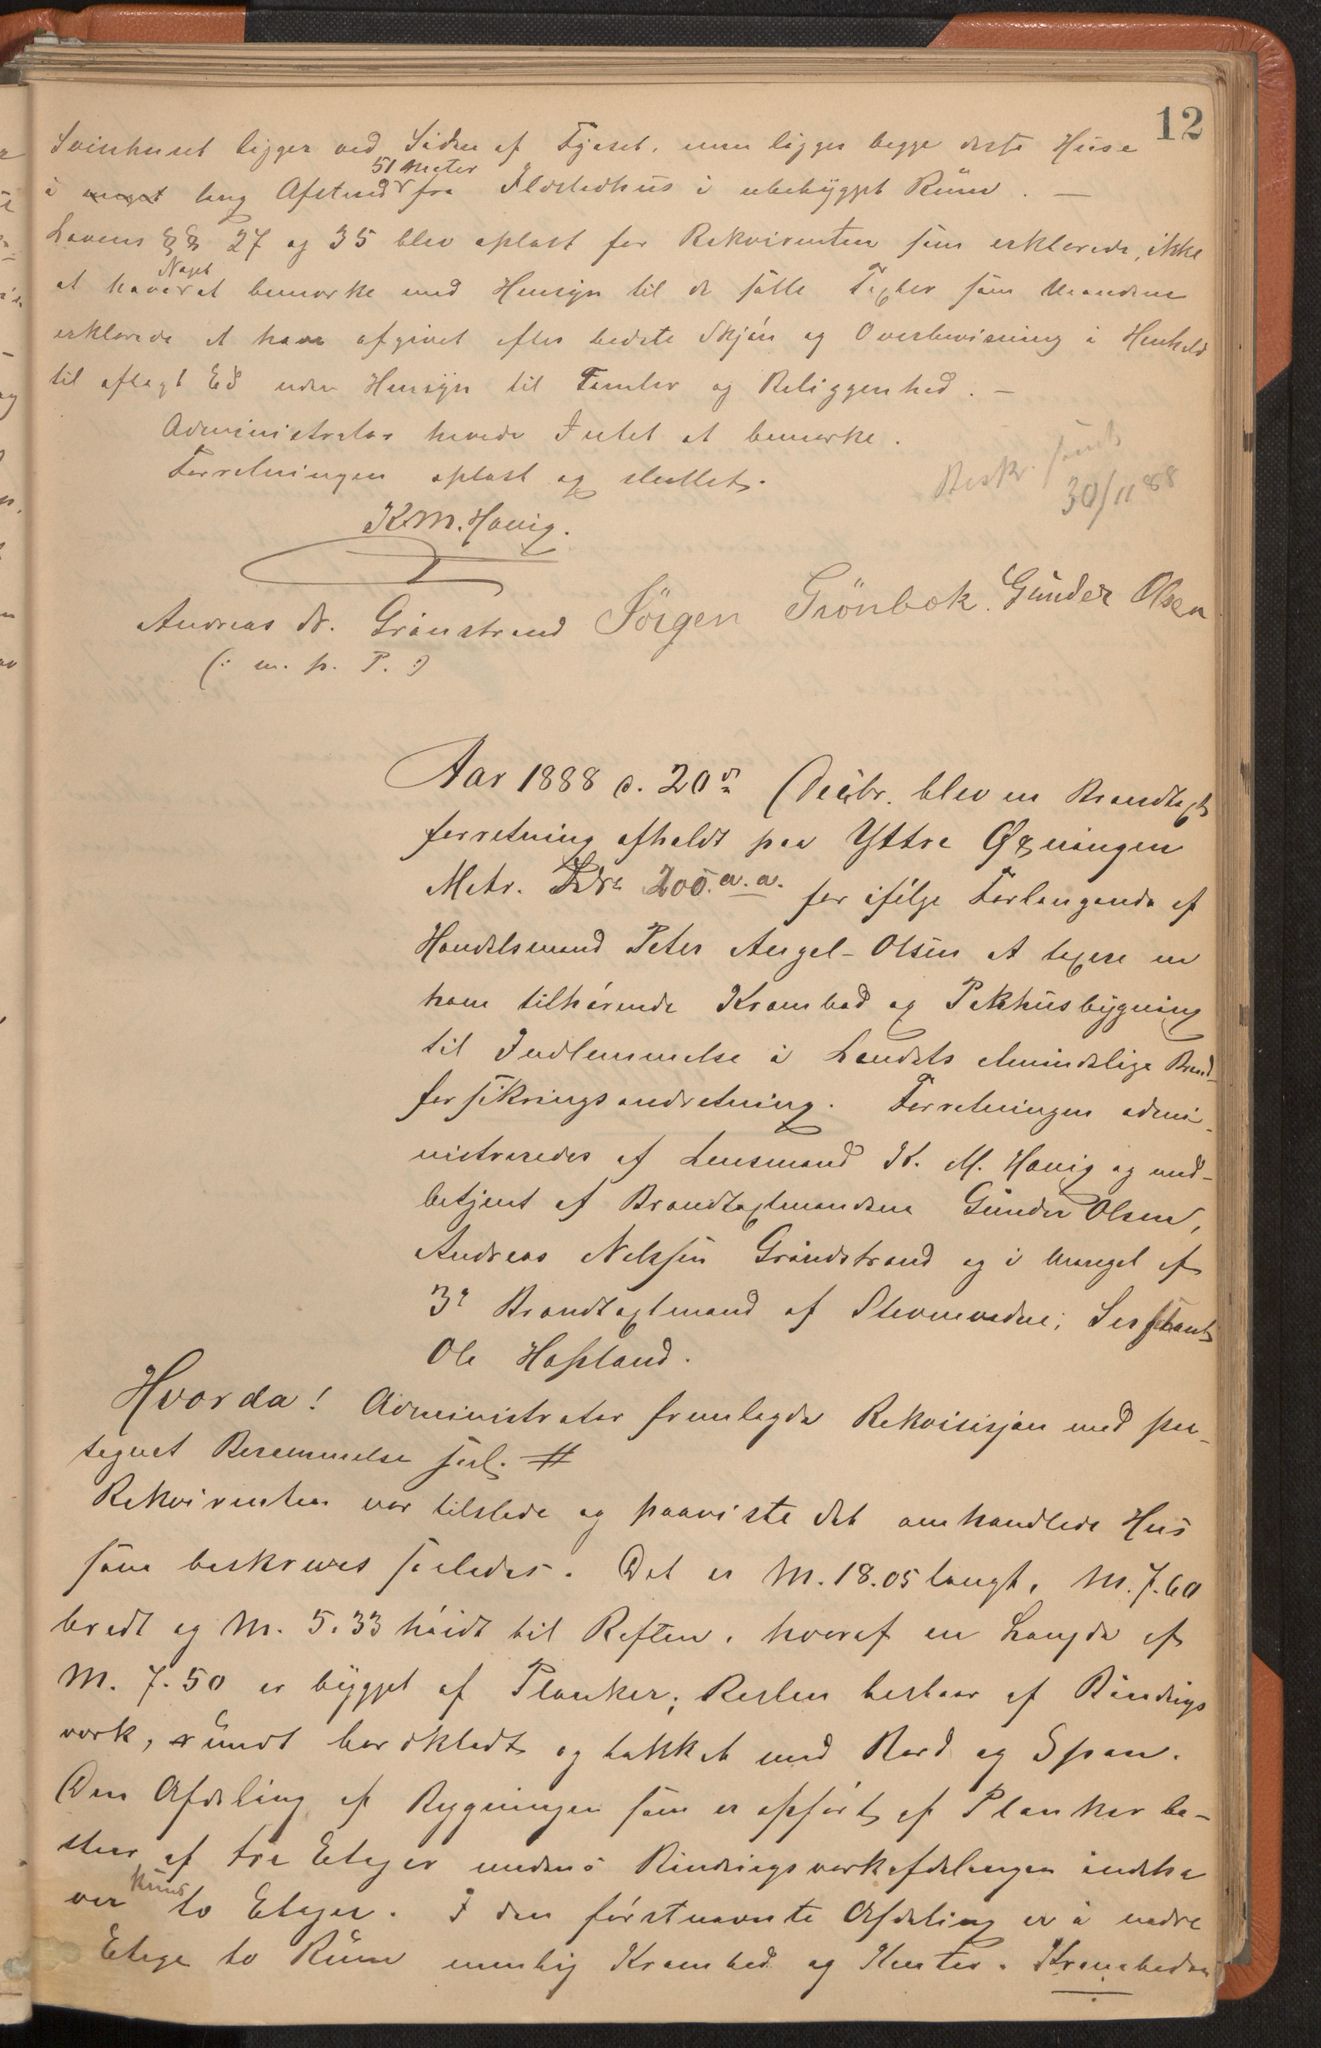 12
Svinhuset ligger ved Siden af Fjøset, men ligger begge disse Huse
i meget lang Afstand 51 meter fra Ildstedhus i ubebygget Rum. —
Lovens §§ 27 og 35 blev oplæst for Rekvirenten som erklærede, ikke
at have Noget at bemærke med Hensyn til de satte Taxter som Mændene
erklærede at have afgivet efter bedste Skjøn og Overbevisning i Henhold
til aflagt Ed uden Hensyn til Tomter og Beliggenhed. —
Administrator havde Intet at bemærke.
Forretningen oplæst og sluttet.
Beskr. sendt
30/11 88
K.M. Havig.
Andreas N. Grønstrand Jörgen Grönbæk. Günder Olsen
(: m. p. P. :)
Aar 1888 d. 20de Decbr. blev en Brandtaxt
forretning afholdt paa Yttre Øxningen
Matr. Lnr. 200.a.a. for ifølge Forlangende af
Handelsmand Peter Angel-Olsen at taxere en
ham tilhørende Krambod og Pakhusbygning
til Indlemmelse i Landets almindelige Brand-
forsikringsindretning. Forretningen admi-
nistreredes af Lensmand K. M. Havig og med-
betjent af Brandtaxtmændene Günder Olsen,
Andreas Nelsen Grøndstrand og i Mangel af
3die Brandtaxtmand af Stevnevidne, Sersjant
Ole Hafsland.
Hvorda! Administrator fremlagde Rekvisisjon med paa-
tegnet Berammelse #
Rekvirenten var tilstede og paaviste det omhandlede Hus
som beskrives saaledes. Det er M. 18.05 langt, M. 7.60
bredt og M. 5.33 høidt til Raften, hvoraf en Længde af
M. 7.50 er bygget af Planker; Resten bestaar af Bindings
værk, rundt bordklædt og tækket med Bord og Spon.
Den Afdeling af Bygningen som er opført af Planker be-
staar af tre Etager medens Bindingsværkafdelingen indeha
ver kuns to Etager. I den førstnævnte Afdeling er i nedre
Etage to Rum nemlig Krambod og Kontor. Kramboden